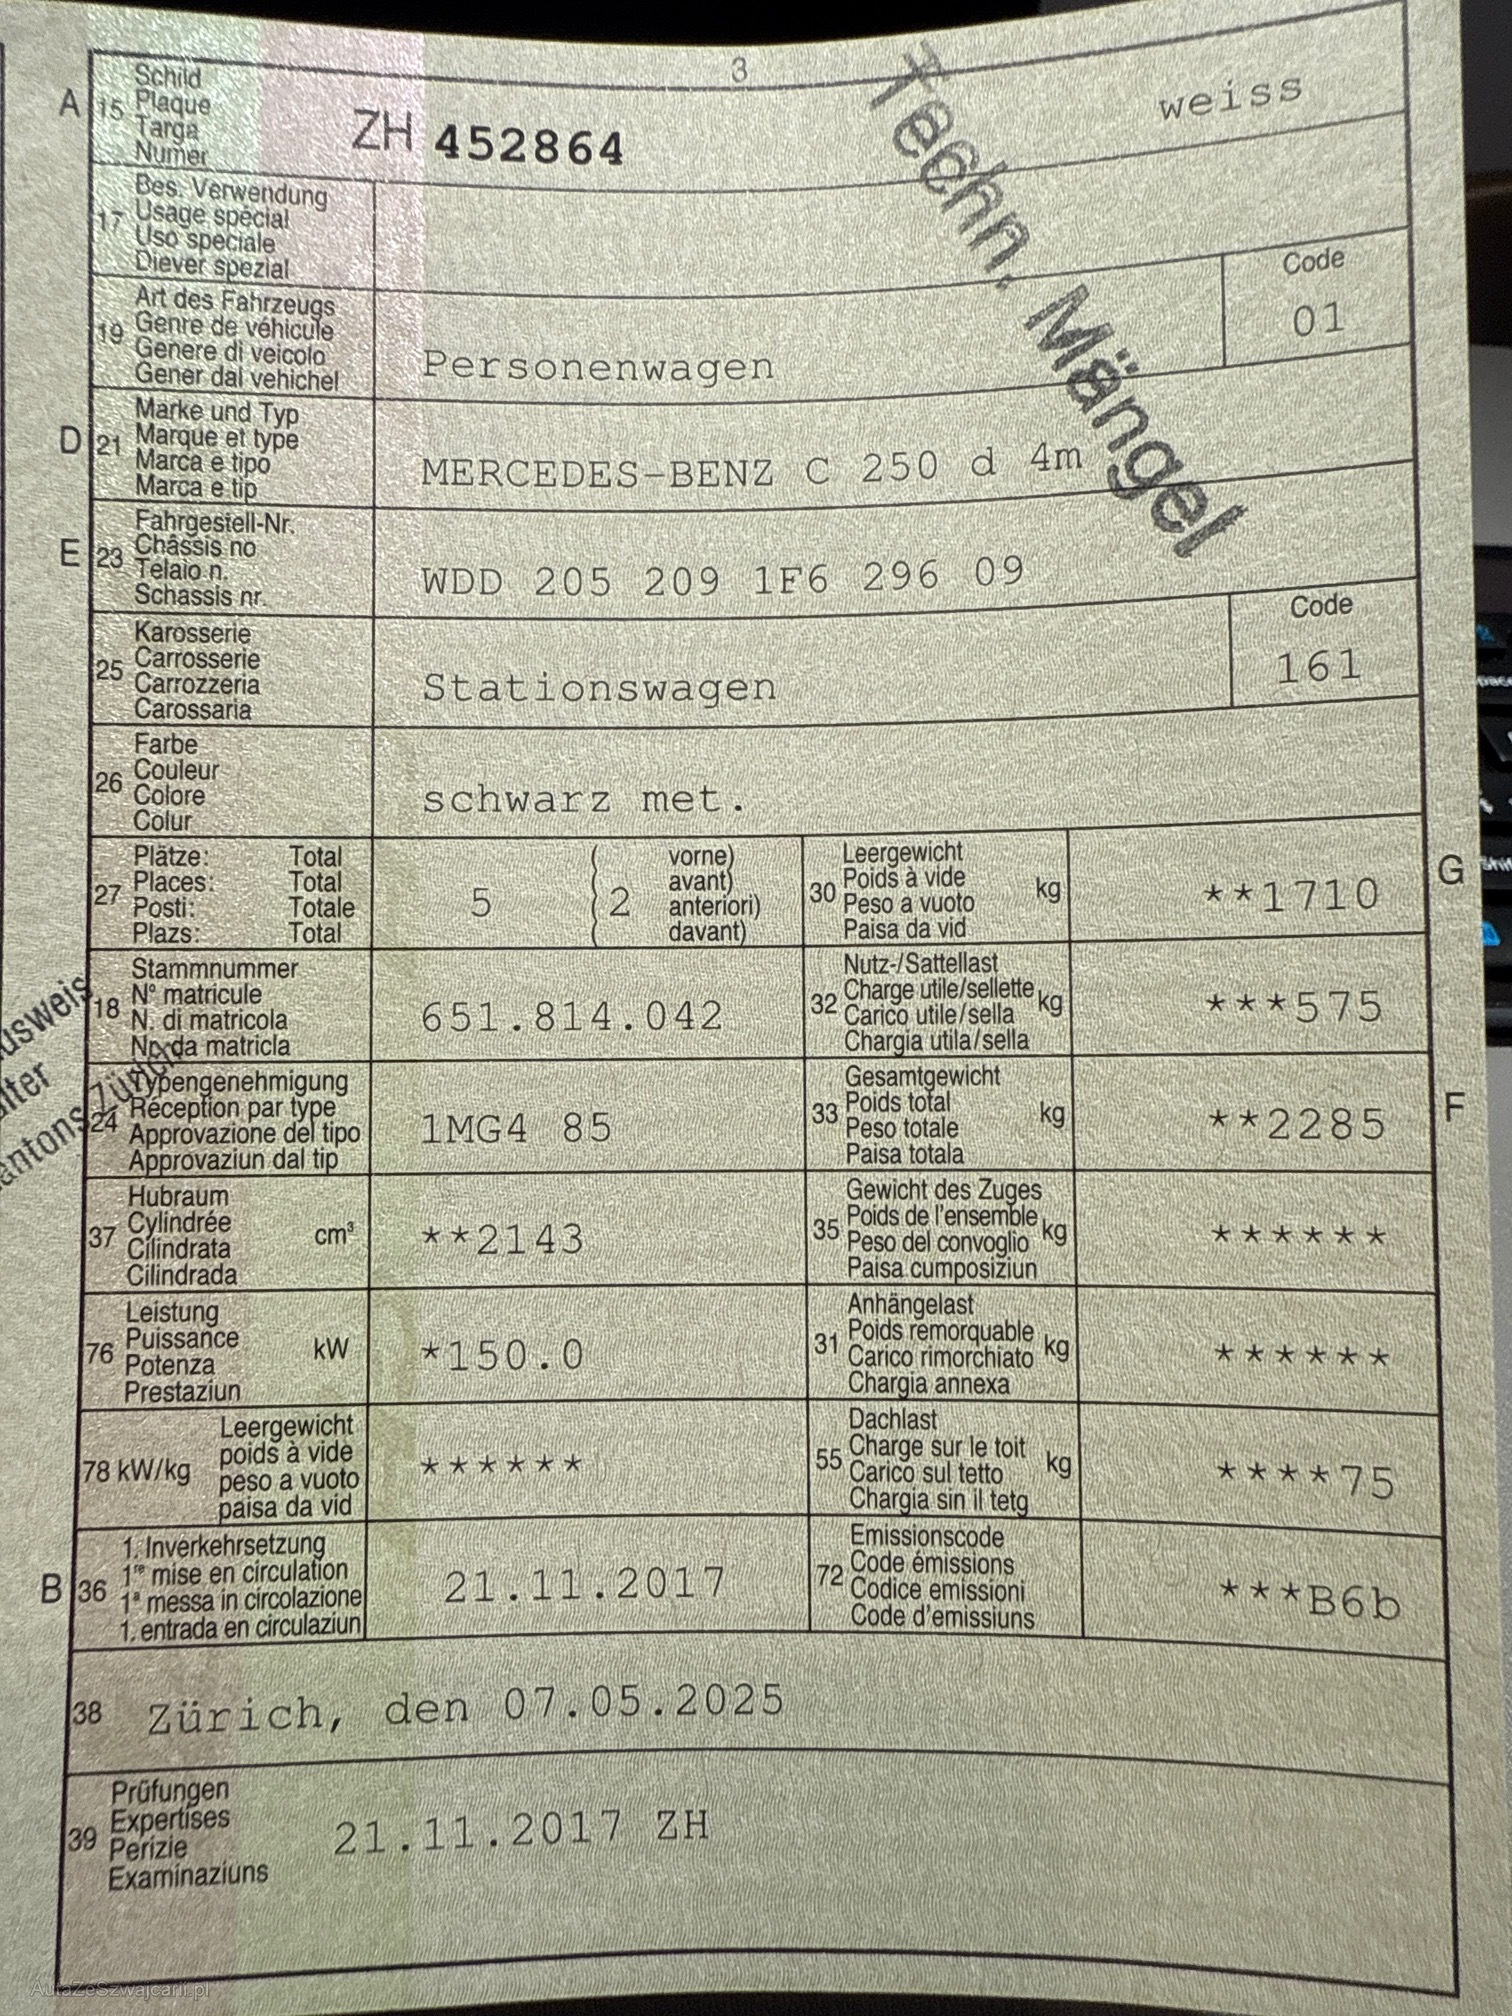 3
A 15 Schild
Plaque
Targa
Numer
ZH 452864
weiss
Techn. Mängel
17 Bes. Verwendung
Usage spécial
Uso speciale
Diever spezial
19 Art des Fahrzeugs
Genre de véhicule
Genere di veicolo
Gener dal vehichel
Personenwagen
Code
01
D 21 Marke und Typ
Marque et type
Marca e tipo
Marca e tip
MERCEDES-BENZ C 250 d 4m
E 23 Fahrgestell-Nr.
Châssis no
Telaio n.
Schassis nr.
WDD 205 209 1F6 296 09
25 Karosserie
Carrosserie
Carrozzeria
Carossaria
Stationswagen
Code
161
26 Farbe
Couleur
Colore
Colur
schwarz met.
27 Plätze: Total
Places: Total
Posti: Totale
Plazs: Total
5 ( 2 vorne)
avant)
anteriori)
davant)
30 Leergewicht
Poids à vide
Peso a vuoto
Paisa da vid
kg
**1710
G
18 Stammnummer
N° matricule
N. di matricola
Nr. da matricla
651.814.042
32 Nutz-/Sattellast
Charge utile/sellette
Carico utile/sella
Chargia utila/sella
kg
***575
24 Typengenehmigung
Réception par type
Approvazione del tipo
Approvaziun dal tip
1MG4 85
33 Gesamtgewicht
Poids total
Peso totale
Paisa totala
kg
**2285
F
37 Hubraum
Cylindrée
Cilindrata
Cilindrada
cm³
**2143
35 Gewicht des Zuges
Poids de l'ensemble
Peso del convoglio
Paisa cumposiziun
kg
******
76 Leistung
Puissance
Potenza
Prestaziun
kW
*150.0
31 Anhängelast
Poids remorquable
Carico rimorchiato
Chargia annexa
kg
******
78 kW/kg
Leergewicht
poids à vide
peso a vuoto
paisa da vid
******
55 Dachlast
Charge sur le toit
Carico sul tetto
Chargia sin il tetg
kg
****75
B 36 1. Inverkehrsetzung
1re mise en circulation
1a messa in circolazione
1. entrada en circulaziun
21.11.2017
72 Emissionscode
Code émissions
Codice emissioni
Code d'emissiuns
***B6b
38 Zürich, den 07.05.2025
39 Prüfungen
Expertises
Perizie
Examinaziuns
21.11.2017 ZH
Zürich
AutaZeSzwajcarii.pl